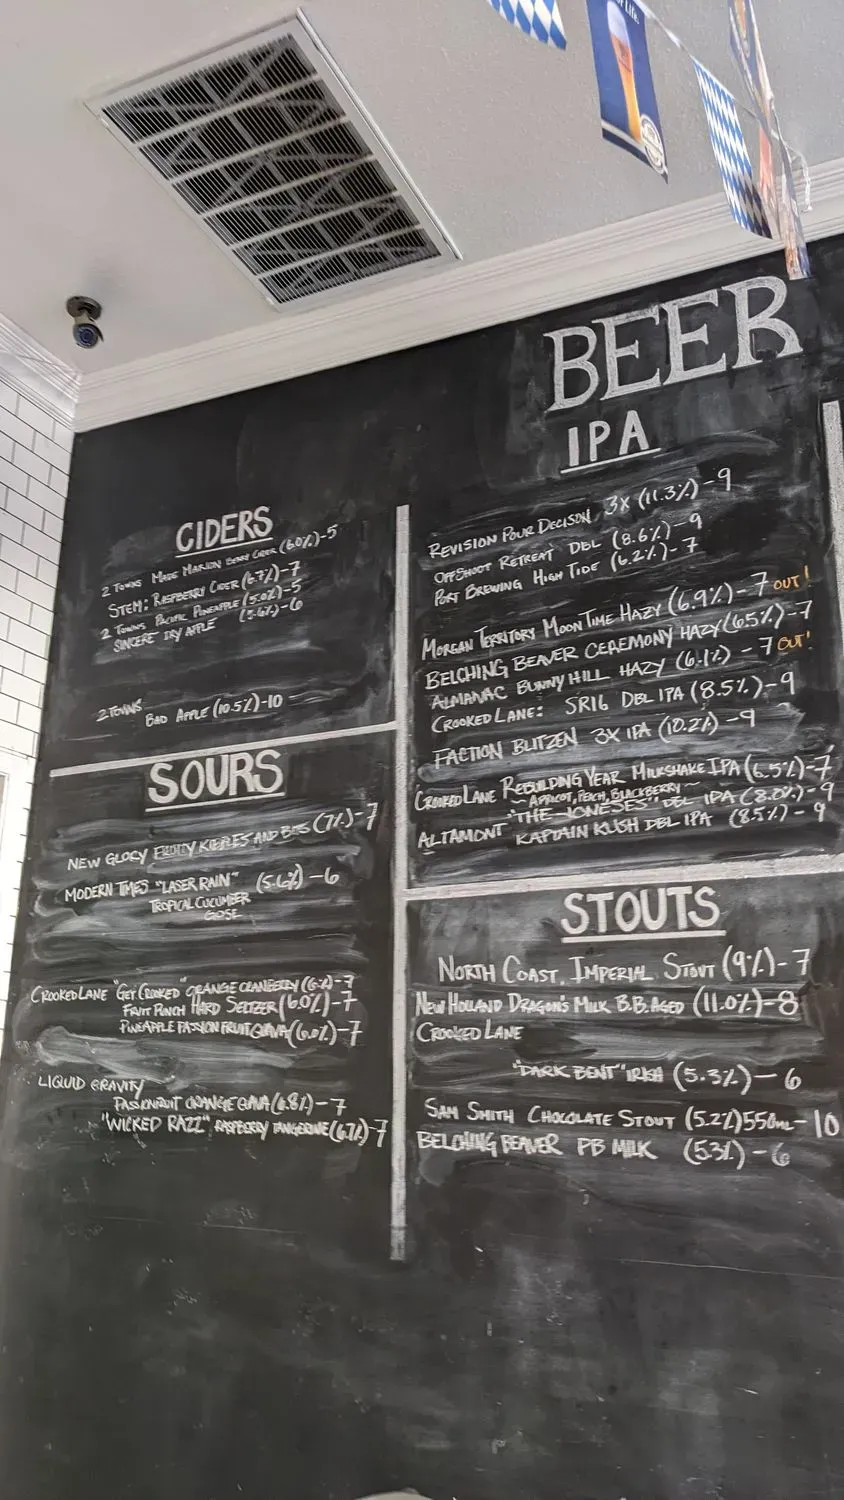 r Life.
BEER
IPA
REVISION POUR DECISION 3X (11.3%)-9
OFFSHOOT RETREAT DBL (8.6%)-9
PORT BREWING HIGH TIDE (6.2%)-7
MORGAN TERRITORY MOON TIME HAZY (6.9%)-7 OUT!
BELCHING BEAVER CEREMONY HAZY (6.5%)-7
ALMANAC BUNNY HILL HAZY (6.1%)-7 OUT!
CROOKED LANE: SR16 DBL IPA (8.5%)-9
FACTION BLITZEN 3X IPA (10.2%)-9
CROOKED LANE REBUILDING YEAR MILKSHAKE IPA (6.5%)-7
~ APRICOT, PEACH, BLACKBERRY ~
ALTAMONT "THE JONESES" DBL IPA (8.0%)-9
KAPTAIN KUSH DBL IPA (8.5%)-9
CIDERS
2 TOWNS MADE MARION BERRY CIDER (6.0%)-5
STEM: RASPBERRY CIDER (6.7%)-7
2 TOWNS PACIFIC PINEAPPLE (5.0%)-5
SINCERE DRY APPLE (5.6%)-6
2 TOWNS
BAD APPLE (10.5%)-10
SOURS
NEW GLORY FRUITY KIBBLES AND BITS (7%)-7
MODERN TIMES "LASER RAIN" (5.6%)-6
TROPICAL CUCUMBER
GOSE
CROOKED LANE "GET CROOKED" ORANGE CRANBERRY (6%)-7
FRUIT PUNCH HARD SELTZER (6.0%)-7
PINEAPPLE PASSION FRUIT GUAVA (6.0%)-7
LIQUID GRAVITY
PASSIONFRUIT ORANGE GUAVA (6.8%)-7
"WICKED RAZZ" RASPBERRY TANGERINE (6.7%)-7
STOUTS
NORTH COAST, IMPERIAL STOUT (9%)-7
NEW HOLLAND DRAGON'S MILK B.B. AGED (11.0%)-8
CROOKED LANE
"DARK BENT" IRISH (5.3%)-6
SAM SMITH CHOCOLATE STOUT (5.2%) 550mL-10
BELCHING BEAVER PB MILK (5.3%)-6